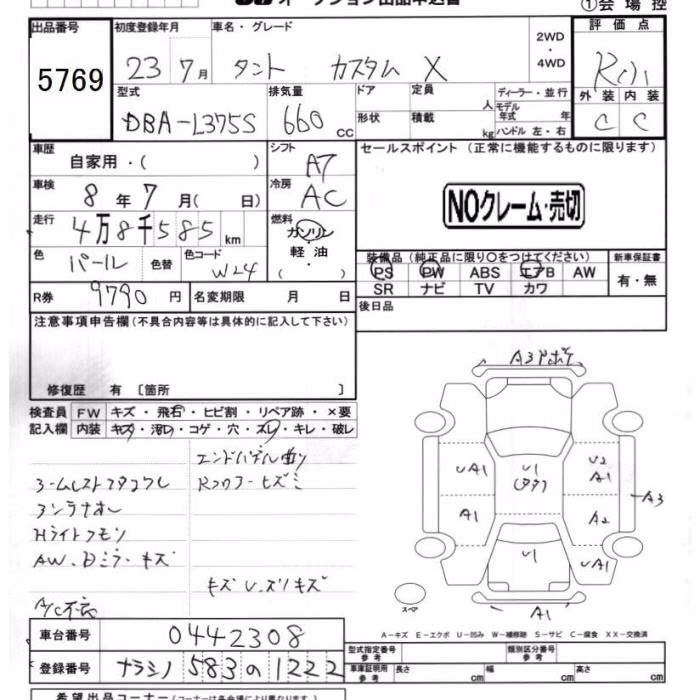 ①会場控
出品番号 初度登録年月 車名・グレード 2WD・4WD 評価点
5769 23年 7月 タント カスタム X
外装 内装
C C
型式 排気量 ドア 定員 人 ディーラー・並行
DBA-L375S 660 CC 形状 積載 kg モデル年式 年 ハンドル 左・右
車歴 シフト セールスポイント (正常に機能するものに限ります)
自家用・( ) AT
車検 冷房
8年 7月( 日) AC
NOクレーム・売切
走行 燃料
4万8千585km ガソリン・軽油
装備品 (純正品に限り○をつけてください) 新車保証書
色 色替 色コード
パール W24
PS PW ABS エアB AW 有・無
SR ナビ TV カワ
R券 9790円 名変期限 月 日 後日品
注意事項申告欄 (不具合内容等は具体的に記入して下さい)
修復歴 有 〔箇所 〕
検査員 FW キズ・飛石・ヒビ割・リペア跡・×要
記入欄 内装 キズ・汚レ・コゲ・穴・スレ・キレ・破レ
Hライトクモリ
AW、Dミラーキズ
キズ U、スリキズ
A/C不良
UA1 U1 U2 A1
A1 A2 A3
U1
A1
スペア
A-キズ E-エクボ U-凹み W-補修跡 S-サビ C-腐食 XX-交換済
車台番号 0442308
型式指定番号 参考 類別区分番号 参考
登録番号 ナラシノ 583 の 1222
車庫証明用 参考 長さ cm 幅 cm 高さ cm
希望出品コーナー